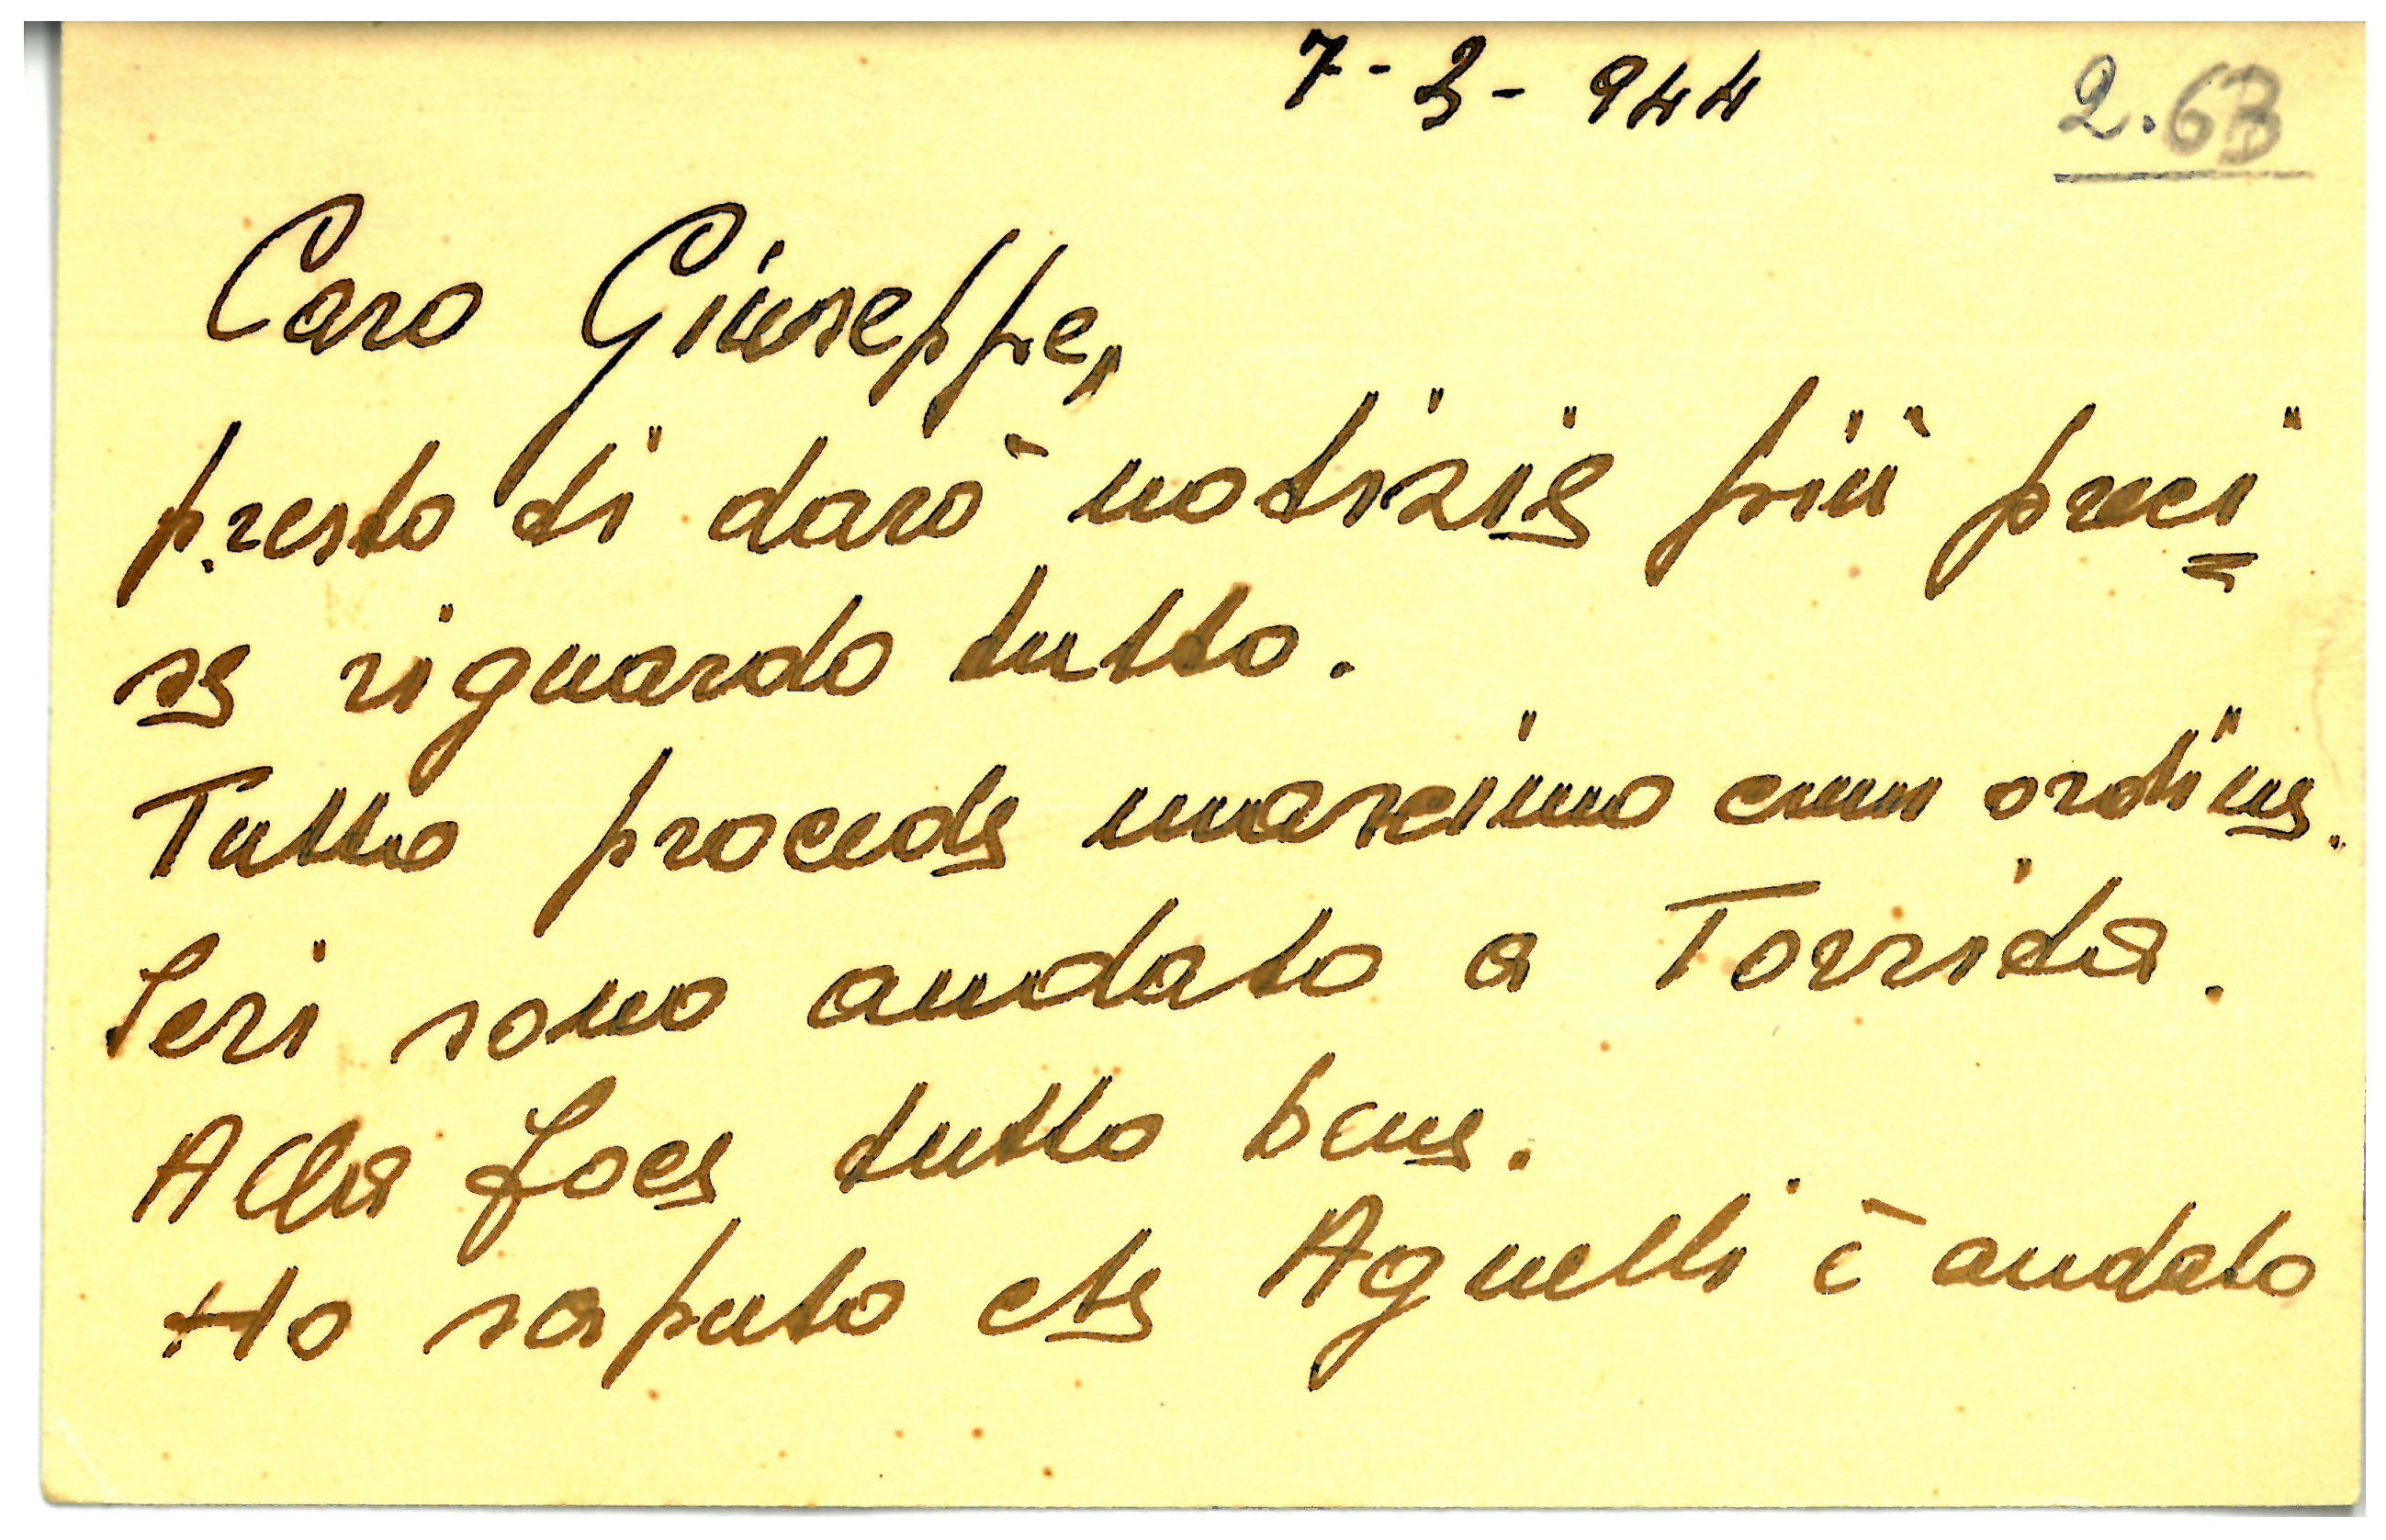 7-3-944
2.63
Caro Giuseppe,
presto ti darò notizie più preci=
se riguardo tutto.
Tutto procede maximo cum ordine.
Ieri sono andato a Torrida.
Alla foce tutto bene.
Ho saputo che Agnelli è andato